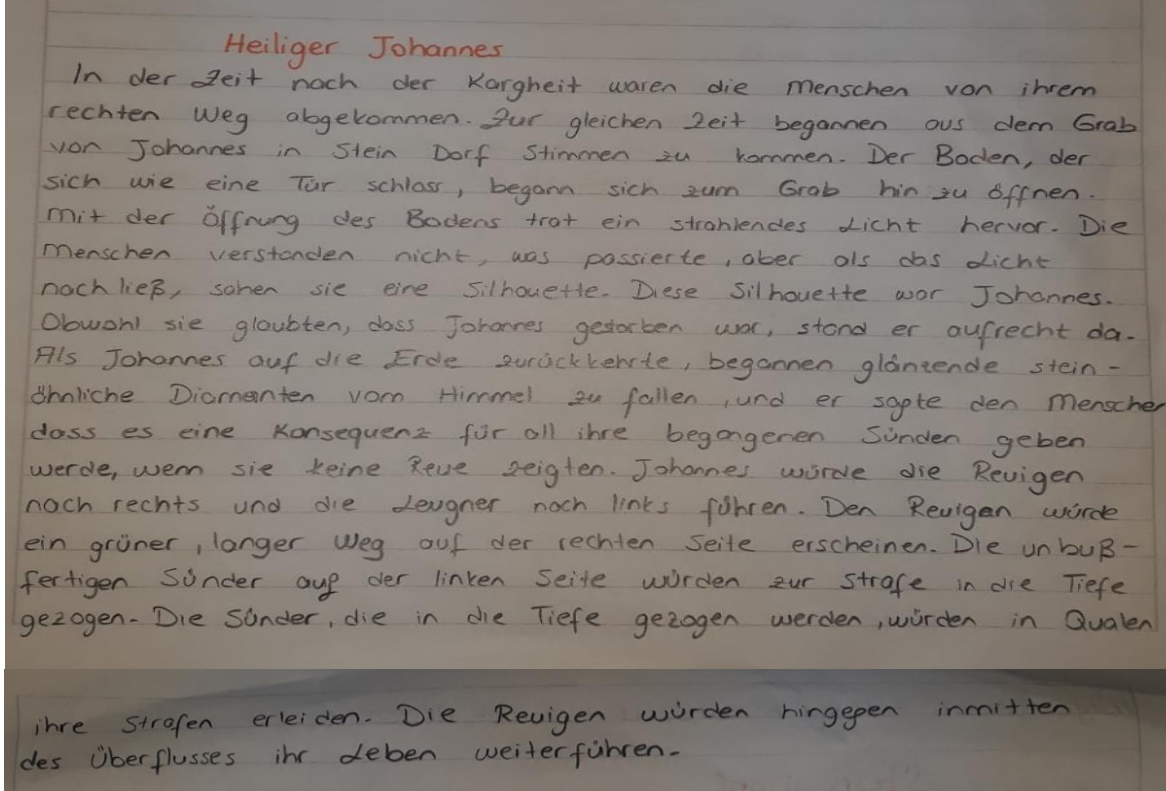 Heiliger Johannes
In der Zeit nach der Kargheit waren die Menschen von ihrem
rechten Weg abgekommen. Zur gleichen Zeit begannen aus dem Grab
von Johannes in Stein Dorf Stimmen zu kommen. Der Boden, der
sich wie eine Tür schloss, begann sich zum Grab hin zu öffnen.
Mit der Öffnung des Bodens trat ein strahlendes Licht hervor. Die
Menschen verstanden nicht, was passierte, aber als das Licht
nach ließ, sahen sie eine Silhouette. Diese Silhouette war Johannes.
Obwohl sie glaubten, dass Johannes gestorben war, stand er aufrecht da.
Als Johannes auf die Erde zurückkehrte, begannen glänzende stein-
ähnliche Diamanten vom Himmel zu fallen, und er sagte den Menschen
dass es eine Konsequenz für all ihre begangenen Sünden geben
werde, wenn sie keine Reue zeigten. Johannes würde die Reuigen
nach rechts und die Leugner nach links führen. Den Reuigen würde
ein grüner, langer Weg auf der rechten Seite erscheinen. Die unbuß-
fertigen Sünder auf der linken Seite würden zur Strafe in die Tiefe
gezogen. Die Sünder, die in die Tiefe gezogen werden, würden in Qualen
ihre Strafen erleiden. Die Reuigen würden hingegen inmitten
des Überflusses ihr Leben weiterführen.